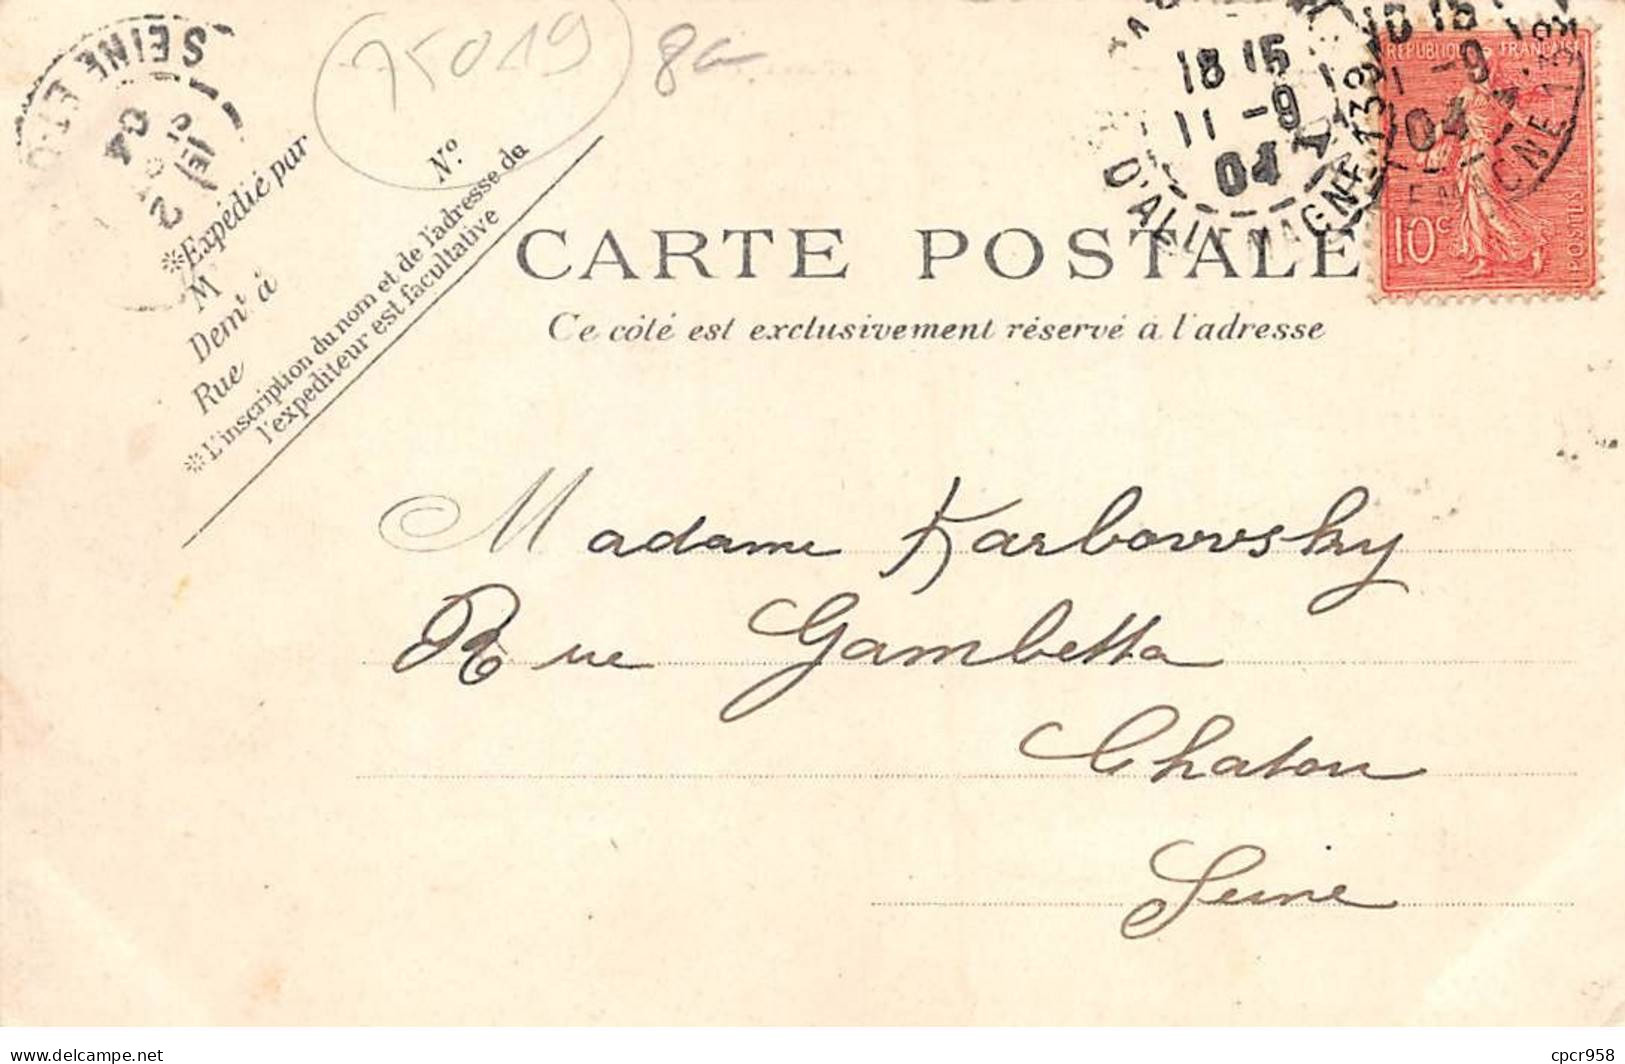 75019
8a
SEINE ET-O
04
N°
*Expédié par
M
Dem' à
Rue
*L'inscription du nom et de l'adresse de
l'expediteur est facultative
18 15
11 -9
04
D'ALLEMAGNE 132
18 15
11 -9
04
REPUBLIQUE FRANÇAISE
10 c
POSTES
CARTE POSTALE
Ce côté est exclusivement réservé à l'adresse
Madame Karbowsky
Rue Gambetta
Chatou
Seine
delcampe.net
cpcr958